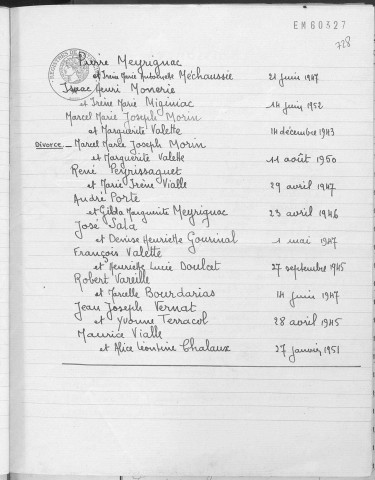 EM60327
728
Pierre Meyrignac
et Irène Marie Antoinette Méchaussie 21 juin 1947
Isaac Henri Monerie
et Irène Marie Miginiac 14 juin 1952
Marcel Marie Joseph Morin
et Marguerite Valette 14 décembre 1943
Divorce _ Marcel Marie Joseph Morin
et Marguerite Valette 11 août 1950
René Peyrissaguet
et Marie Irène Vialle 29 avril 1947
André Porte
et Gilda Marguerite Meyrignac 23 avril 1946
José Sala
et Denise Henriette Gourinal 1 mai 1947
François Valette
et Henriette Lucie Doulcet 27 septembre 1945
Robert Vareille
et Marcelle Bourdarias 14 juin 1947
Jean Joseph Vernat
et Yvonne Terracol 28 avril 1945
Maurice Vialle
et Alice Léontine Chalaux 27 janvier 1951